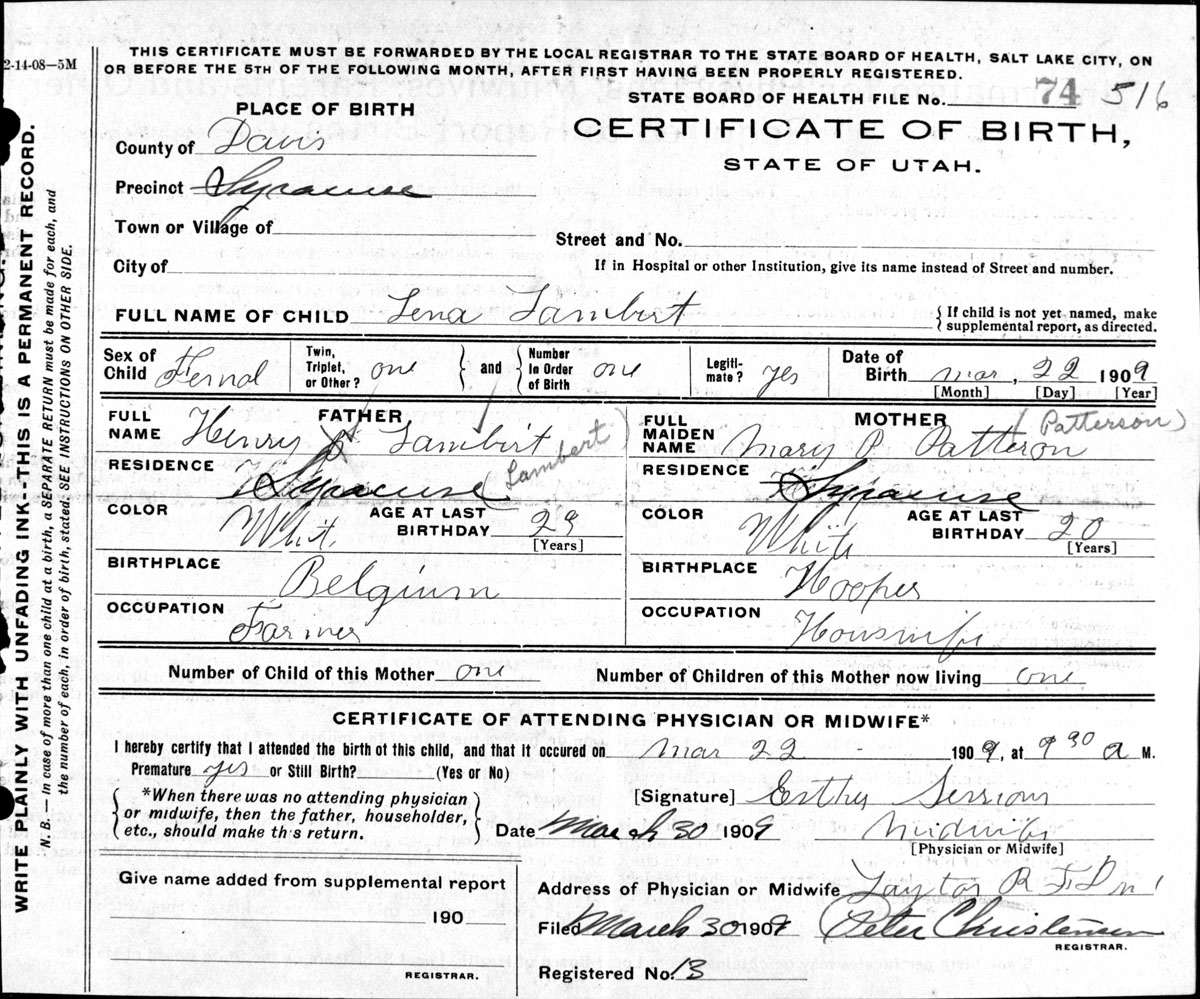 2-14-08—5M
THIS CERTIFICATE MUST BE FORWARDED BY THE LOCAL REGISTRAR TO THE STATE BOARD OF HEALTH, SALT LAKE CITY, ON
OR BEFORE THE 5TH OF THE FOLLOWING MONTH, AFTER FIRST HAVING BEEN PROPERLY REGISTERED.
STATE BOARD OF HEALTH FILE No. 74 516
PLACE OF BIRTH
CERTIFICATE OF BIRTH,
STATE OF UTAH.
County of Davis
Precinct Syracuse
Town or Village of
Street and No.
City of
If in Hospital or other Institution, give its name instead of Street and number.
FULL NAME OF CHILD Lena Lambert
{ If child is not yet named, make
supplemental report, as directed.
Sex of Child Femal
Twin, Triplet, or Other? one } and { Number In Order of Birth one
Legiti- mate? yes
Date of Birth mar, 22 1909
[Month] [Day] [Year]
FATHER
FULL NAME Henry Lambirt
(Lambert)
RESIDENCE Syracuse
COLOR Whit
AGE AT LAST BIRTHDAY 29
[Years]
BIRTHPLACE Belgium
OCCUPATION Farmer
MOTHER
FULL MAIDEN NAME Mary P. Patteron
(Patterson)
RESIDENCE Syracuse
COLOR White
AGE AT LAST BIRTHDAY 20
[Years]
BIRTHPLACE Hooper
OCCUPATION Houswife
Number of Child of this Mother one
Number of Children of this Mother now living one
CERTIFICATE OF ATTENDING PHYSICIAN OR MIDWIFE*
I hereby certify that I attended the birth of this child, and that it occured on mar 22 1909, at 9 30 a M.
Premature yes or Still Birth? (Yes or No)
{ *When there was no attending physician
or midwife, then the father, householder,
etc., should make th's return. }
[Signature] Esther Sessions
Date March 30 1909 Midwife
[Physician or Midwife]
Give name added from supplemental report
190
REGISTRAR.
Address of Physician or Midwife Layton R F D n 1
Filed March 30 1909 Peter Christensen
REGISTRAR.
Registered No. 13
WRITE PLAINLY WITH UNFADING INK--THIS IS A PERMANENT RECORD.
N. B.— In case of more than one child at a birth, a SEPARATE RETURN must be made for each, and
the number of each, in order of birth, stated. SEE INSTRUCTIONS ON OTHER SIDE.